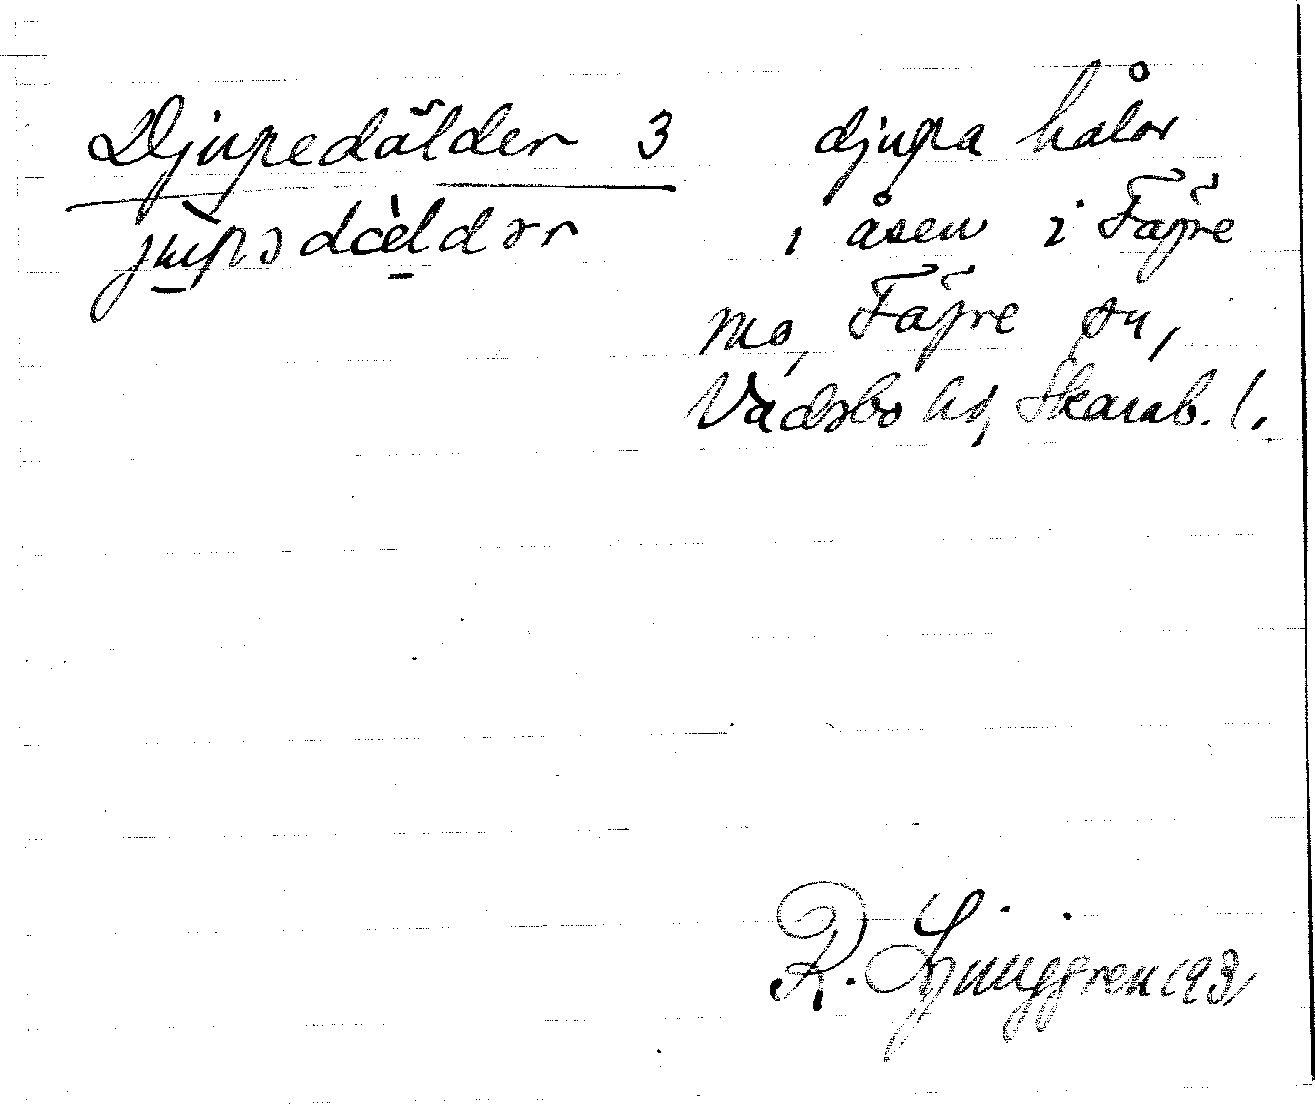 Djupedälder 3
jùpədældər
djupa hålor
i åsen i Fägre
mo, Fägre sn,
Vadsbo hd, Skarab. l.
R. Ljunggren 193